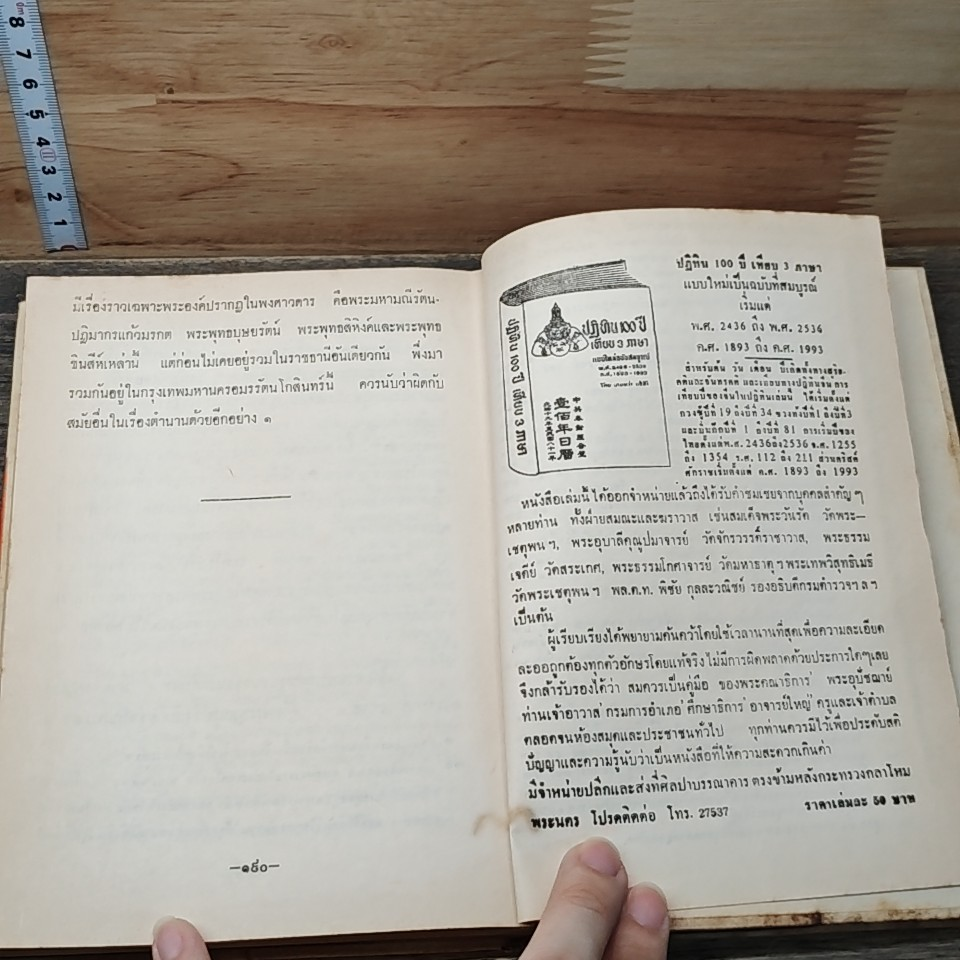 8
7
6
5
4
3
2
1
มีเรื่องราวเฉพาะพระองค์ปรากฏในพงศาวดาร คือพระมหามณีรัตน-
ปฏิมากรแก้วมรกต พระพุทธบุษยรัตน์ พระพุทธสิหิงค์และพระพุทธ
ชินสีห์เหล่านี้ แต่ก่อนไม่เคยอยู่รวมในราชธานีอันเดียวกัน พึ่งมา
รวมกันอยู่ในกรุงเทพมหานครอมรรัตนโกสินทร์นี้ ควรนับว่าผิดกับ
สมัยอื่นในเรื่องตำนานด้วยอีกอย่าง ๑
—๑๕๐—
ปฏิทิน 100 ปี เทียบ 3 ภาษา
แบบใหม่เป็นฉบับที่สมบูรณ์
เริ่มแต่
พ.ศ. 2436 ถึง พ.ศ. 2536
ค.ศ. 1893 ถึง ค.ศ. 1993
ปฏิทิน 100 ปี เทียบ 3 ภาษา
ปฏิทิน 100 ปี
เทียบ 3 ภาษา
壹佰年日曆
สำหรับค้น วัน เดือน ปีเกิดทั้งทางสุริย-
คติและจันทรคติ และเทียบทางปฏิทินจีน การ
เทียบปีของจีนในปฏิทินเล่มนี้ ให้เริ่มตั้งแต่
กวงซู่ปีที่ 19 ถึงปีที่ 34 ซวงท้งปีที่1 ถึงปีที่3
และมินก๊กปีที่ 1 ถึงปีที่ 81 การเริ่มปีของ
ไทยตั้งแต่พ.ศ. 2436ถึง2536 จ.ศ. 1255
ถึง 1354 ร.ศ. 112 ถึง 211 ส่วนคริสต์
ศักราชเริ่มตั้งแต่ ค.ศ. 1893 ถึง 1993
หนังสือเล่มนี้ ได้ออกจำหน่ายแล้วถึงได้รับคำชมเชยจากบุคคลสำคัญ ๆ
หลายท่าน ทั้งฝ่ายสมณะและฆราวาส เช่นสมเด็จพระวันรัต วัดพระ—
เชตุพน ฯ, พระอุบาลีคุณูปมาจารย์ วัดจักรวรรดิ์ราชาวาส, พระธรรม
เจดีย์ วัดสระเกศ, พระธรรมโกศาจารย์ วัดมหาธาตุ ฯ พระเทพวิสุทธิเมธี
วัดพระเชตุพน ฯ พล.ต.ท. พิชัย กุลละวณิชย์ รองอธิบดีกรมตำรวจ ฯ ล ฯ
เป็นต้น
ผู้เรียบเรียงได้พยายามค้นคว้าโดยใช้เวลานานที่สุดเพื่อความละเอียด
ละออถูกต้องทุกตัวอักษรโดยแท้จริง ไม่มีการผิดพลาดด้วยประการใดๆเลย
จึงกล้ารับรองได้ว่า สมควรเป็นคู่มือ ของพระคณาธิการ พระอุปัชฌาย์
ท่านเจ้าอาวาส กรมการอำเภอ ศึกษาธิการ อาจารย์ใหญ่ ครูและเจ้าตำบล
ตลอดจนห้องสมุดและประชาชนทั่วไป ทุกท่านควรมีไว้เพื่อประดับสติ
ปัญญาและความรู้นับว่าเป็นหนังสือที่ให้ความสะดวกเกินค่า
มีจำหน่ายปลีกและส่งที่ศิลปาบรรณาคาร ตรงข้ามหลังกระทรวงกลาโหม
พระนคร โปรดติดต่อ โทร. 27537 ราคาเล่มละ 50 บาท